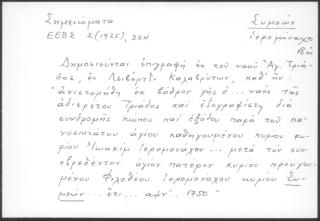 Σημειώματα
ΕΕΒΣ 2(1925), 224
Συμεών
ἱερομόναχο
Βω
Δημοσιεύεται ἐπιγραφή ἐκ τοῦ ναοῦ "Ἁγ. Τριά-
δος, ἐν Λειβάρτζι Καλαβρύτων, καθ' ἥν:
"ἀνιστορήθη ἐκ βάθρον γῆς ὁ... ναός τῆς
ἀδιερετου Τριάδος καί ἐζογραφίστη διά
συνδρομῆς κώπου καί ἐξόδου παρά τοῦ πα-
νοσιοτάτου ἁγίου καθηγουμένου κυρίου κυρ-
ίου Ἰωακίμ ἱερομονάχου... μετά τόν συν
εβρεθέντον ἁγίον πατέρον κυρίου προηγου-
μένου Φιλοθέου ἱερομονάχου κυρίου Συ-
μεών... ἔτι... αψν'. 1750"